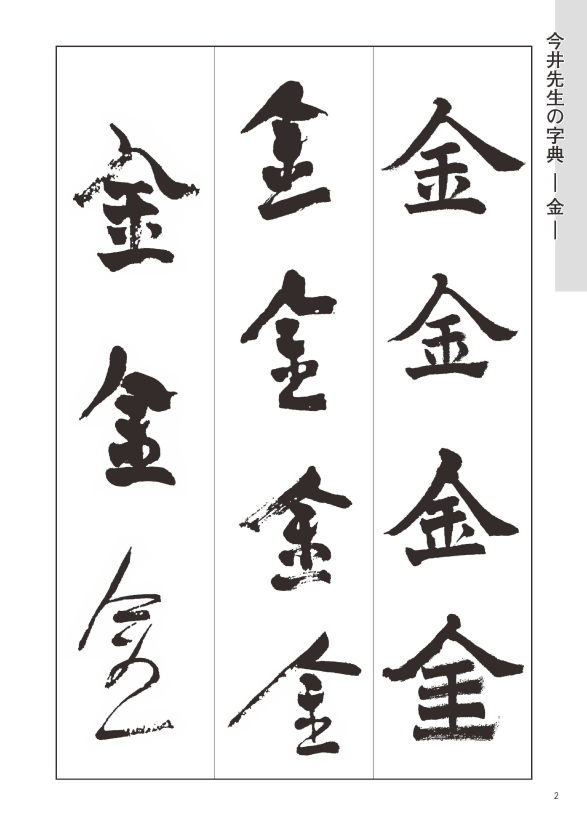 今井先生の字典 ― 金 ―
金
金
金
金
金
金
金
金
金
金
金
2